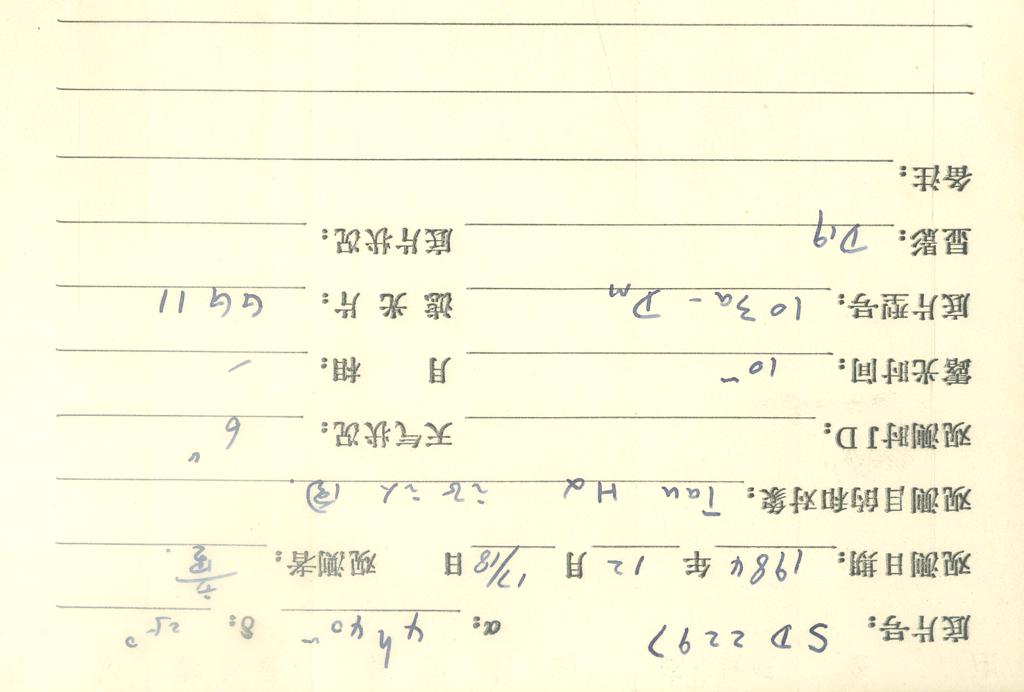 底片号: SD2297 α: 4h40m δ: 25°
观测日期: 1984 年 12 月 17/18 日 观测者:
观测目的和对象: Tau Hα
观测时JD: 天气状况: 6
露光时间: 10m 月 相: —
底片型号: 103a-D 滤 光 片: GG11
显影: D19 底片状况:
备注: